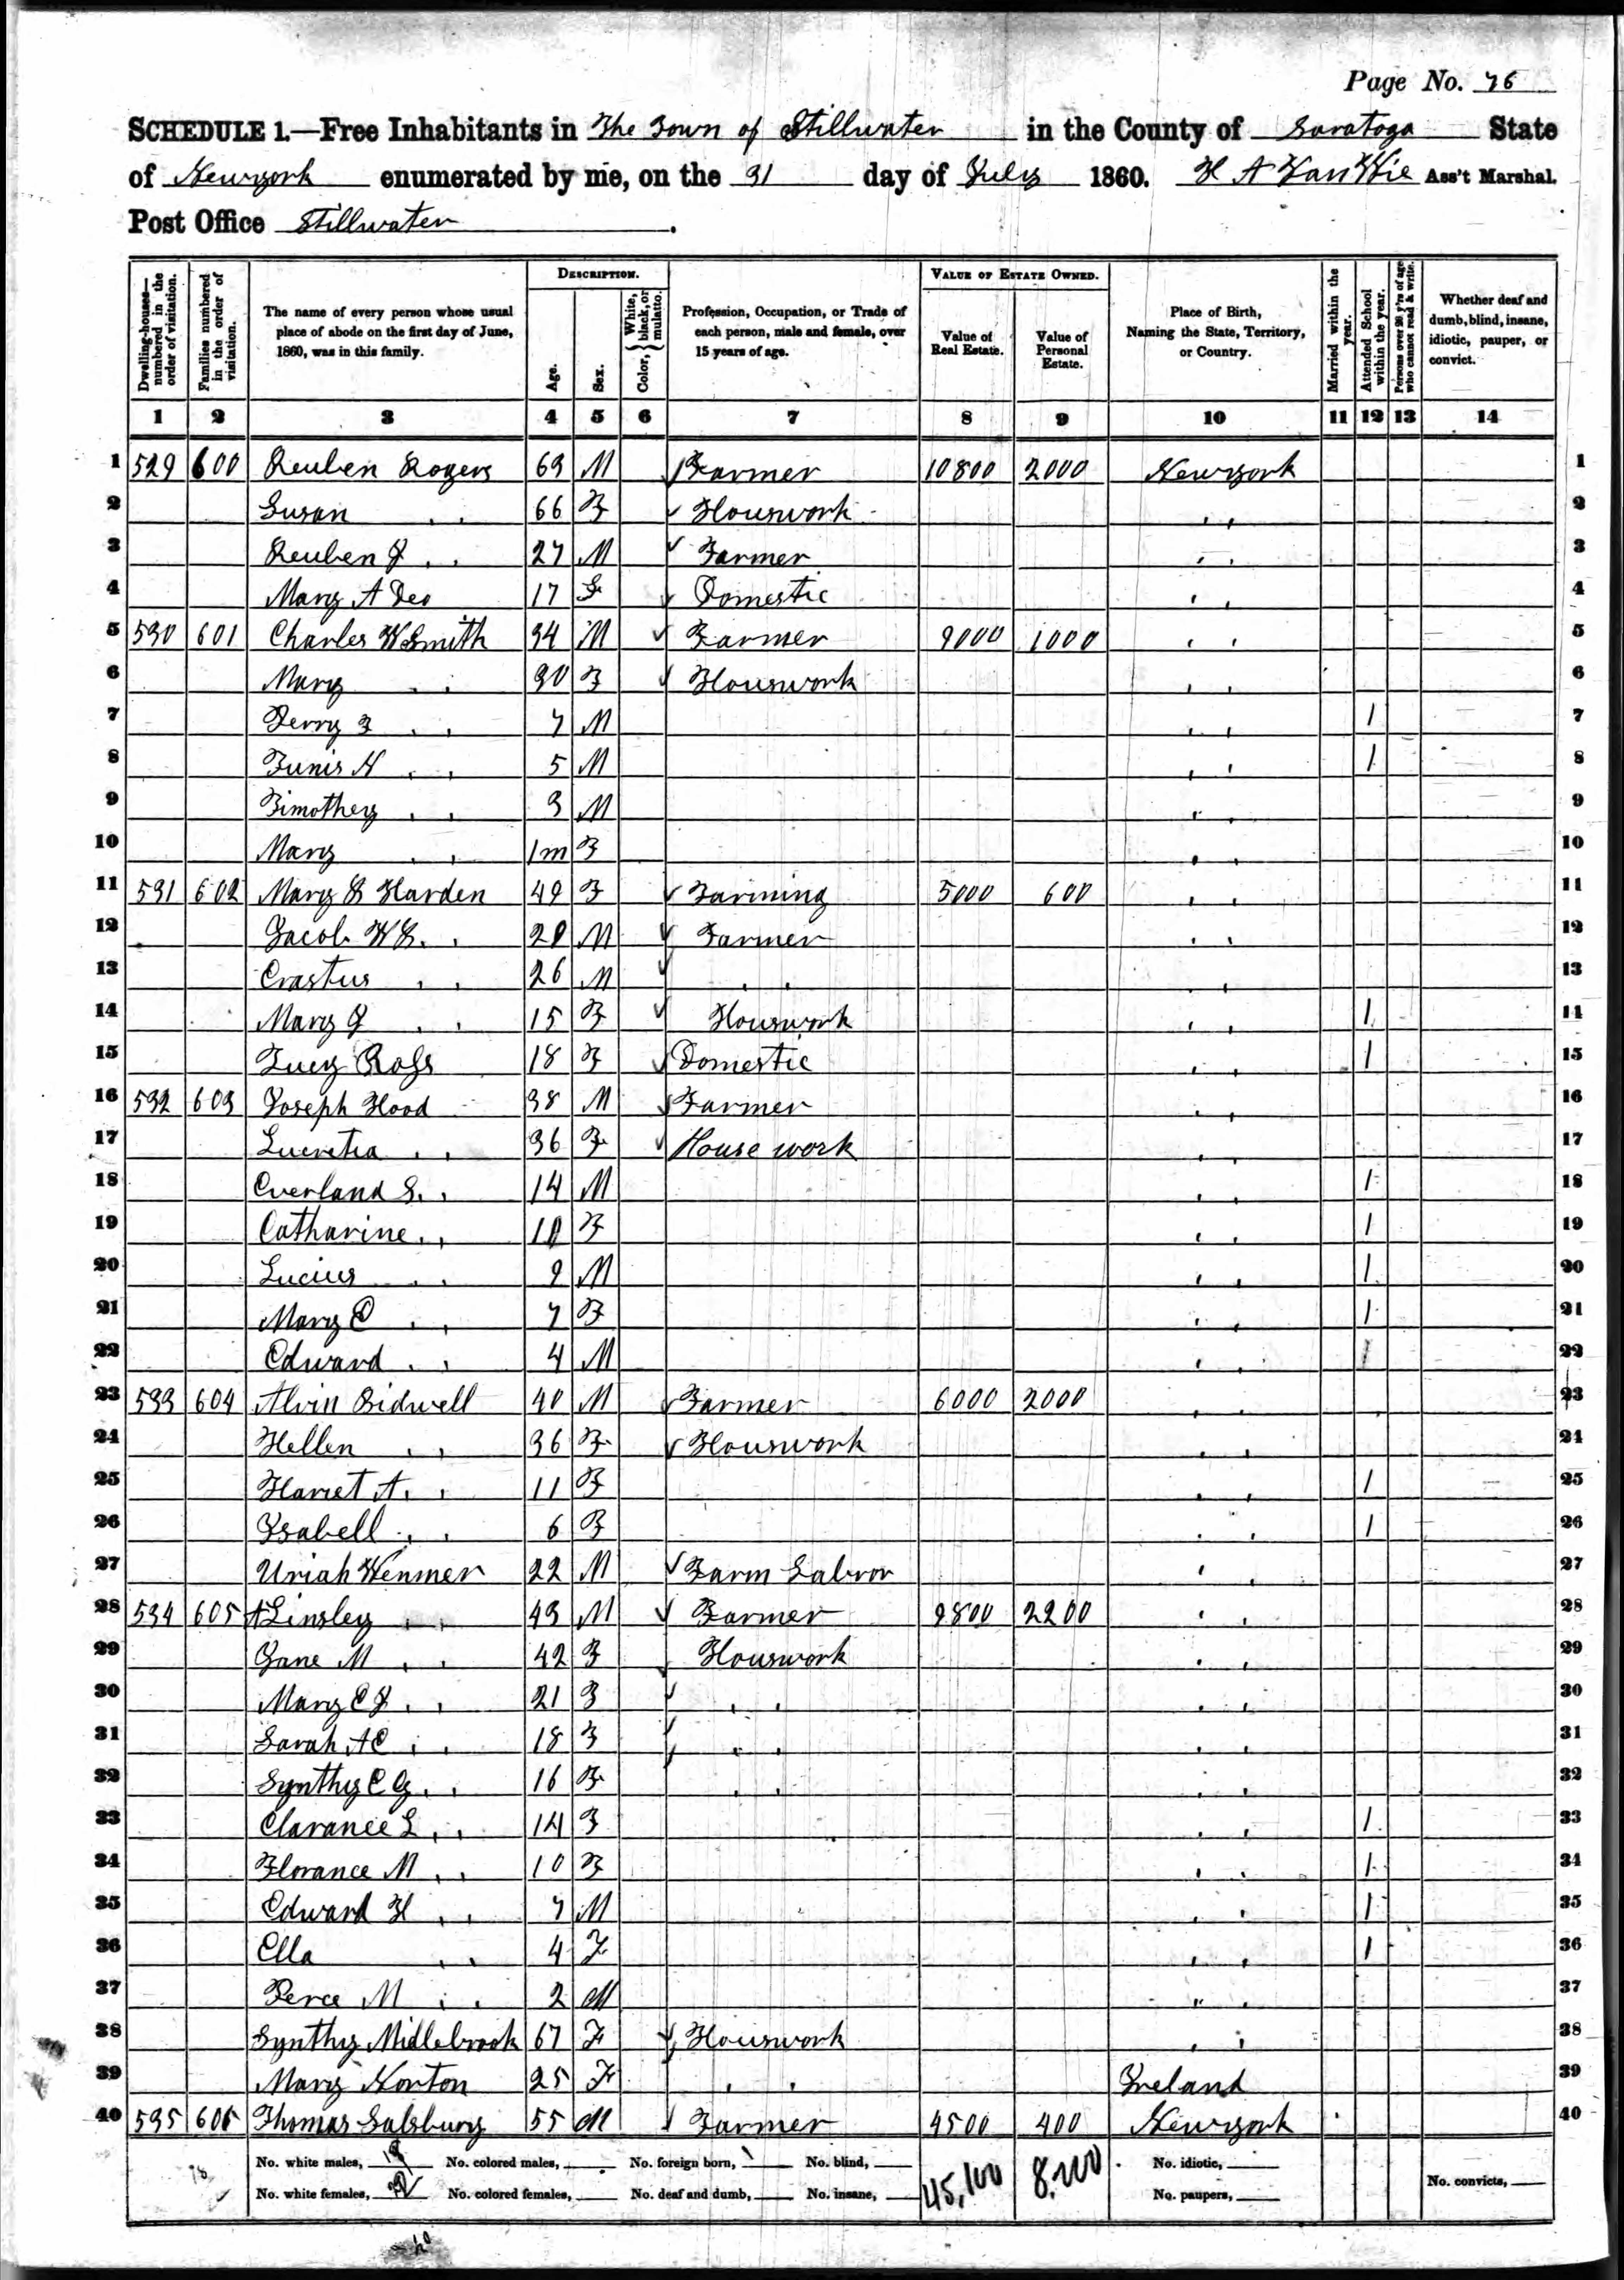 Page No. 76
SCHEDULE 1.—Free Inhabitants in The Town of Stillwater in the County of Saratoga State
of Newyork enumerated by me, on the 31 day of July 1860. H A Van Wie Ass't Marshal.
Post Office Stillwater.
Dwelling-houses—numbered in the order of visitation.
Families numbered in the order of visitation.
The name of every person whose usual place of abode on the first day of June, 1860, was in this family.
DESCRIPTION.
Age.
Sex.
Color, {White, black, or mulatto.
Profession, Occupation, or Trade of each person, male and female, over 15 years of age.
VALUE OF ESTATE OWNED.
Value of Real Estate.
Value of Personal Estate.
Place of Birth, Naming the State, Territory, or Country.
Married within the year.
Attended School within the year.
Persons over 20 y'rs of age who cannot read & write.
Whether deaf and dumb, blind, insane, idiotic, pauper, or convict.
1 2 3 4 5 6 7 8 9 10 11 12 13 14
1 529 600 Reuben Rogers 63 M Farmer 10800 2000 Newyork 1
2 Susan " 66 F Houswork " 2
3 Reuben J " 27 M Farmer " 3
4 Mary A Deo 17 F Domestic " 4
5 530 601 Charles W Smith 34 M Farmer 9000 1000 " 5
6 Mary " 30 F Houswork " 6
7 Perry F " 7 M " 1 7
8 Tunis H " 5 M " 1 8
9 Timothey " 3 M " 9
10 Mary " 1m F " 10
11 531 602 Mary S Harden 49 F Farming 5000 600 " 11
12 Jacob W S " 28 M Farmer " 12
13 Erastus " 26 M " " 13
14 Mary J " 15 F Houswork " 1 14
15 Lucy Ross 18 F Domestic " 1 15
16 532 603 Joseph Hood 38 M Farmer " 16
17 Lucretia " 36 F House work " 17
18 Everland S. " 14 M " 1 18
19 Catharine " 10 F " 1 19
20 Lucius " 9 M " 1 20
21 Mary E " 7 F " 1 21
22 Edward " 4 M " 1 22
23 533 604 Alvin Bidwell 40 M Farmer 6000 2000 " 23
24 Hellen " 36 F Houswork " 24
25 Harriet A. " 11 F " 1 25
26 Isabell " 6 F " 1 26
27 Uriah Wenmer 22 M Farm Labror " 27
28 534 605 A Linsley " 43 M Farmer 9800 2200 " 28
29 Jane M " 42 F Houswork " 29
30 Mary E J " 21 F " " 30
31 Sarah A C " 18 F " " 31
32 Synthy C G " 16 F " " 32
33 Clarance L " 14 F " 1 33
34 Florance M " 10 F " 1 34
35 Edward H " 7 M " 1 35
36 Ella " 4 F " 1 36
37 Perce M " 2 M " 37
38 Synthy Midlebrook 67 F Houswork " 38
39 Mary Norton 25 F " Ireland 39
40 535 606 Thomas Salsbury 55 M Farmer 4500 400 Newyork 40
No. white males, 18 No. colored males, No. foreign born, 1 No. blind, 45,100 8,200 No. idiotic,
No. white females, 22 No. colored females, No. deaf and dumb, No. insane, No. paupers, No. convicts,